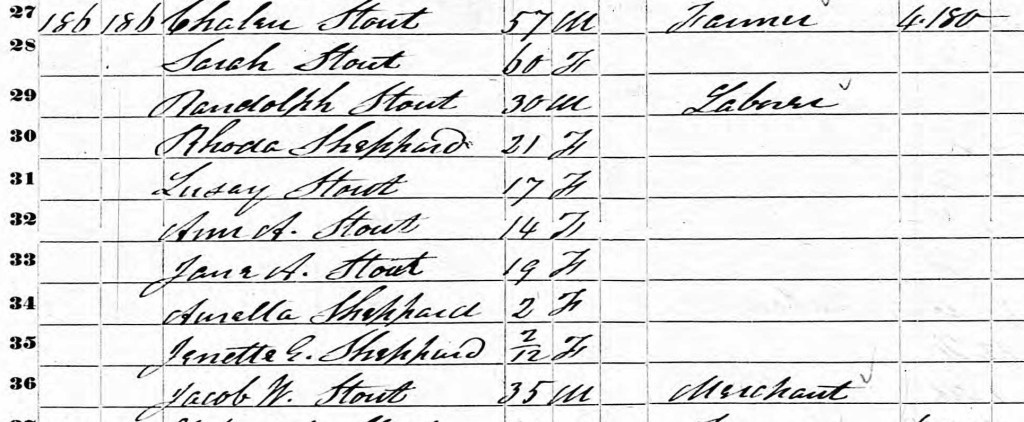 27 186 186 Chalen Stout 57 M Farmer 4.180
28 Sarah Stout 60 F
29 Randolph Stout 30 M Laborer
30 Rhoda Sheppard 21 F
31 Lusay Stout 17 F
32 Ann A. Stout 14 F
33 Jane A. Stout 19 F
34 Aurella Sheppard 2 F
35 Jenette E. Sheppard 2/12 F
36 Jacob W. Stout 35 M Merchant